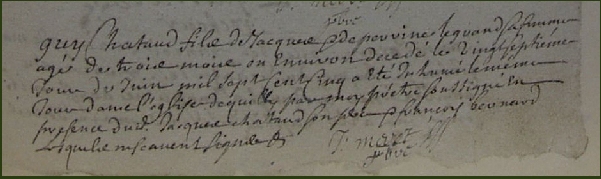 guy Chataud fils de Jacques & de perrine legrand sa femme
agés de trois mois ou Environ decedé le vingt septiéme
Jour de Juin mil sept cent cinq a eté Inhumé le meme
Jour dans l'eglise de par moy prêtre soussigné En
presence du d. Jacques chattaud son pere & françois bernard
lesquels ne scavent signer